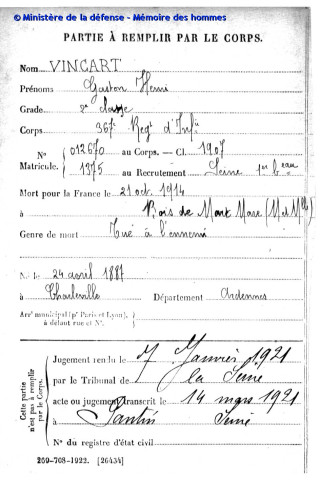 © Ministère de la défense - Mémoire des hommes
PARTIE À REMPLIR PAR LE CORPS.
Nom VINCART
Prénoms Gaston Henri
Grade 2e classe
Corps 367e Regt d'Infie
N° 012670 au Corps. — Cl. 1907
Matricule. 1375 au Recrutement Seine 1er beau
Mort pour la France le 21 oct 1914
à Bois de Mort Mare (M et Mlle)
Genre de mort Tué à l'ennemi
Né le 24 avril 1887
à Charleville Département Ardennes
Arrt municipal (pr Paris et Lyon),
à défaut rue et N°.
Cette partie n'est pas à remplir par le Corps.
Jugement rendu le 7 Janvier 1921
par le Tribunal de la Seine
acte ou jugement transcrit le 14 mars 1921
à Pantin Seine
N° du registre d'état civil
269-708-1922. [26434]